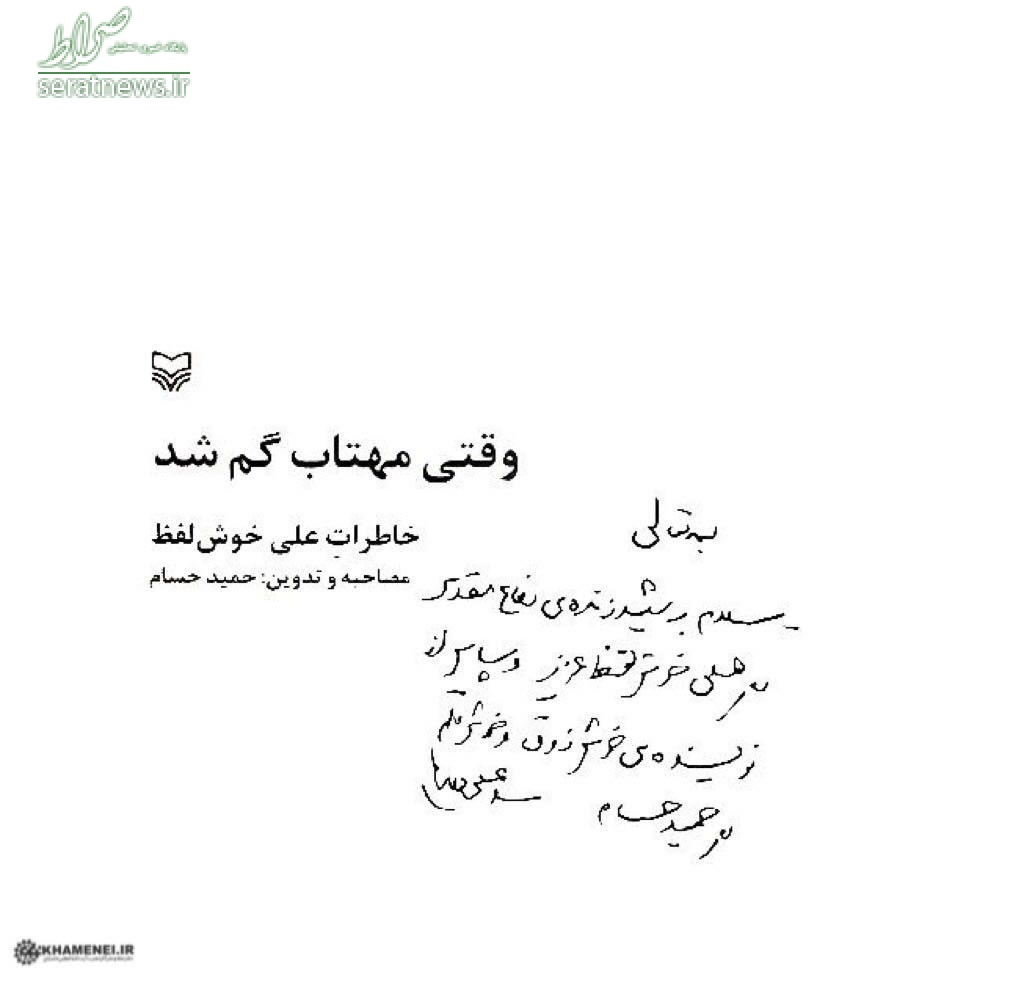 صراط
پایگاه خبری تحلیلی
seratnews.ir
وقتی مهتاب گم شد
خاطرات علی خوش‌لفظ
مصاحبه و تدوین: حمید حسام
بسمه‌تعالی
سلام بر شهید زنده‌ی دفاع مقدس
علی خوش‌لفظ عزیز و سپاس از
نویسنده‌ی خوش ذوق و خوش قلم
حمید حسام
سید علی خامنه‌ای
KHAMENEI.IR